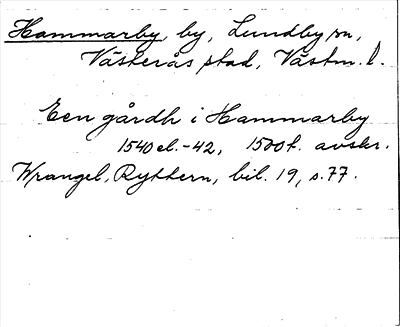 Hammarby, by, Lundby sn,
Västerås stad, Västm. l.
Een gårdh i Hammarby
1540 el. -42, 1500t. avskr.
Wrangel, Ryttern, bil. 19, s. 77.